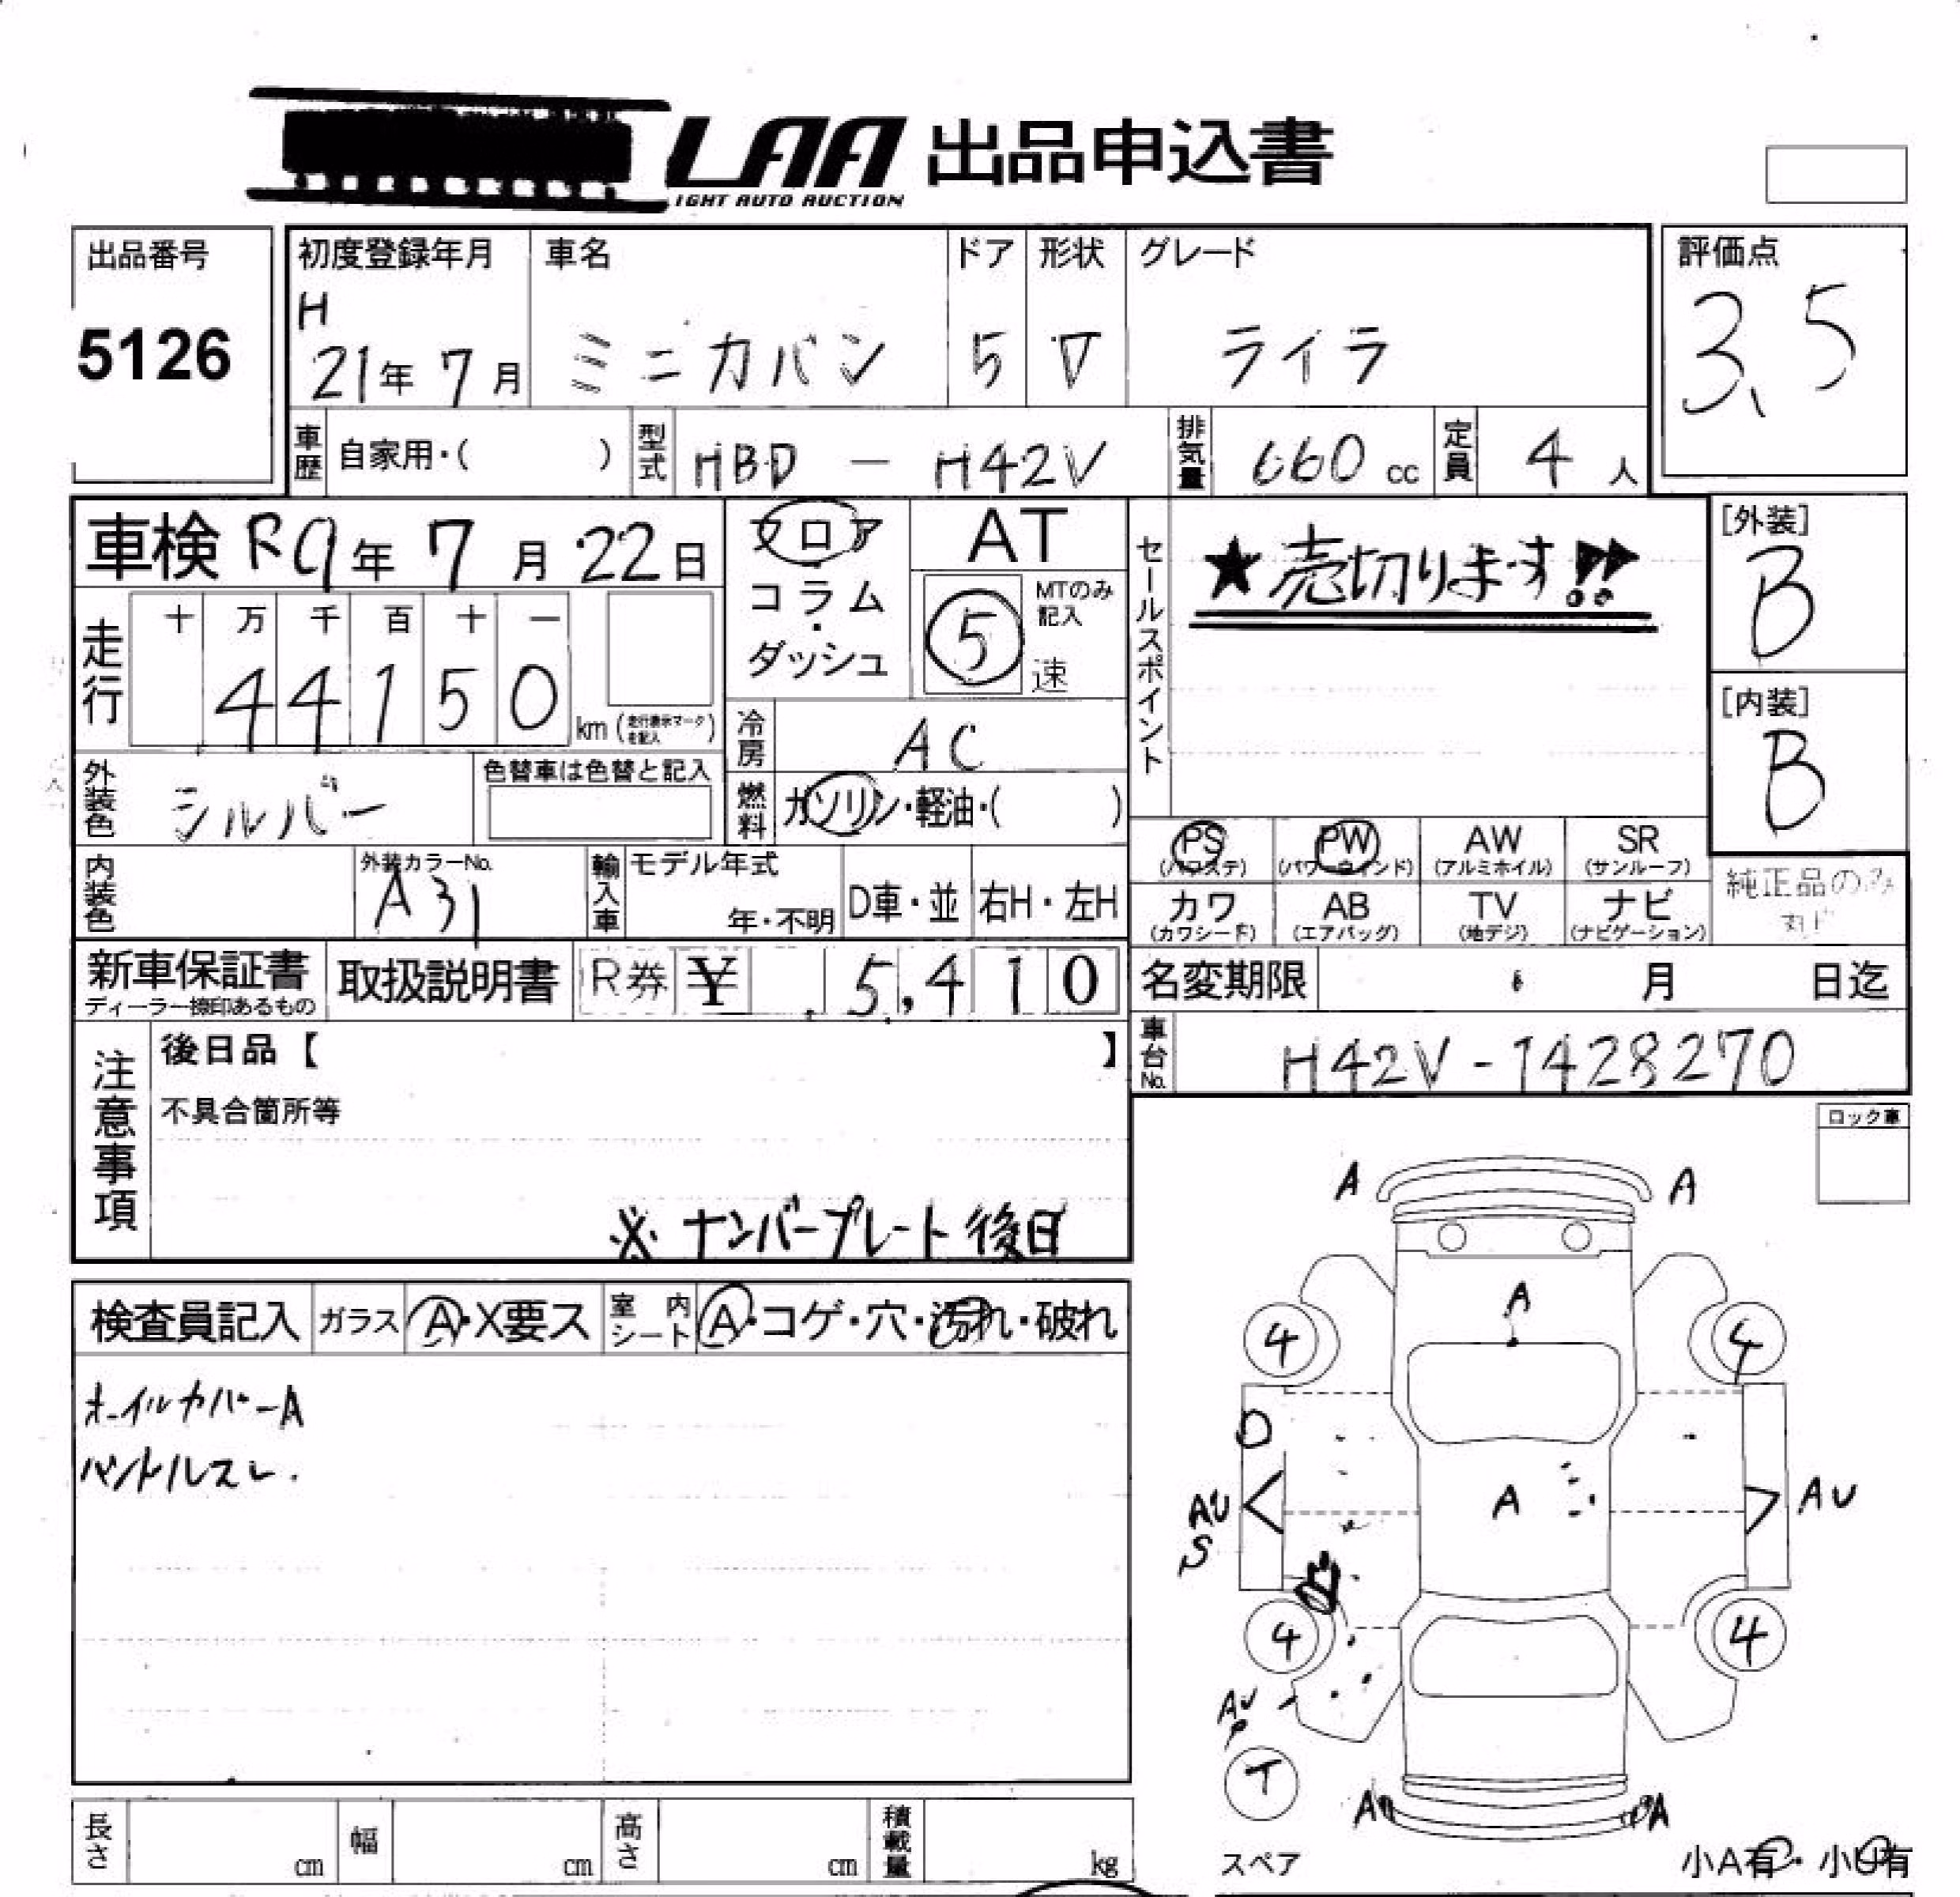 LAA 出品申込書
IGHT AUTO AUCTION
出品番号
5126
初度登録年月
H
21年 7月
車名
ミニカバン
ドア
5
形状
V
グレード
ライラ
評価点
3.5
車歴 自家用・( )
型式 HBD - H42V
排気量 660 cc
定員 4 人
車検 R9年 7月 22日
フロア・
コラム・
ダッシュ
AT
5
MTのみ
記入
速
セールスポイント
★売切ります!!
[外装]
B
[内装]
B
走行
十 万 千 百 十 一
4 4 1 5 0
km (走行表示マークを記入)
冷房 AC
外装色 シルバー
色替車は色替と記入
燃料 ガソリン・軽油・( )
PS
(パワステ)
PW
(パワーウィンド)
AW
(アルミホイル)
SR
(サンルーフ)
カワ
(カワシート)
AB
(エアバッグ)
TV
(地デジ)
ナビ
(ナビゲーション)
純正品のみ
内装色
外装カラーNo.
A31
輸入車
モデル年式
年・不明
D車・並
右H・左H
新車保証書
ディーラー捺印あるもの
取扱説明書
R券 ¥ 5,410
名変期限 月 日迄
車台No. H42V-1428270
注意事項
後日品【 】
不具合箇所等
※ナンバープレート後日
ロック車
検査員記入
ガラス A・X要ス
室内シート A・コゲ・穴・汚れ・破れ
ホイルカバーA
ハンドルスレ.
A A
A
4 4
A
AU
S
AU
4 4
AU
P
T
A A
スペア
小A有・小U有
長さ cm
幅 cm
高さ cm
積載量 kg